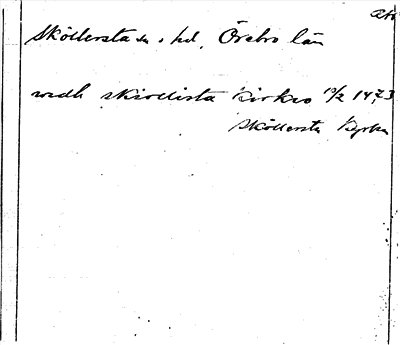 Sköllersta sn o hd, Örebro län
vedh skiollista kirkio 10/2 1473
Sköllersta Kyrka